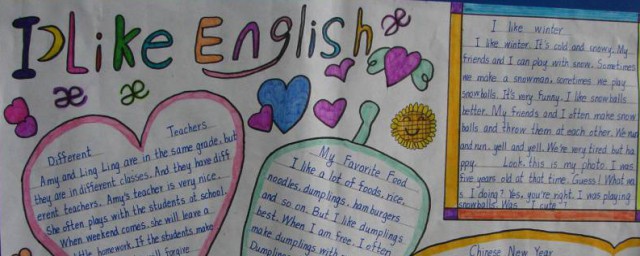 I Like English
æ
æ
æ
Different Teachers
Amy and Ling Ling are in the same grade, but
they are in different classes. And they have diff
erent teachers. Amy's teacher is very nice.
She often plays with the students at school.
When weekend comes, she will leave a
little homework. If the students make
will forgive
My Favorite Food
I like a lot of foods, rice,
noodles, dumplings, hamburgers
and so on. But I like dumplings
best. When I am free, I often
make dumplings with
Dumplin
I like winter
I like winter. It's cold and snowy. My
friends and I can play with snow. Sometimes
we make a snowman, sometimes we play
snowballs. It's very funny. I like snowballs
better. My friends and I often make snow
balls and throw them at each other. We run
and run, yell and yell. We're very tired but ha
ppy. Look, this is my photo. I was
five years old at that time. Guess! What wa
s I doing? Yes, you're right. I was playing
snowballs. Was I cute?
Chinese New Year